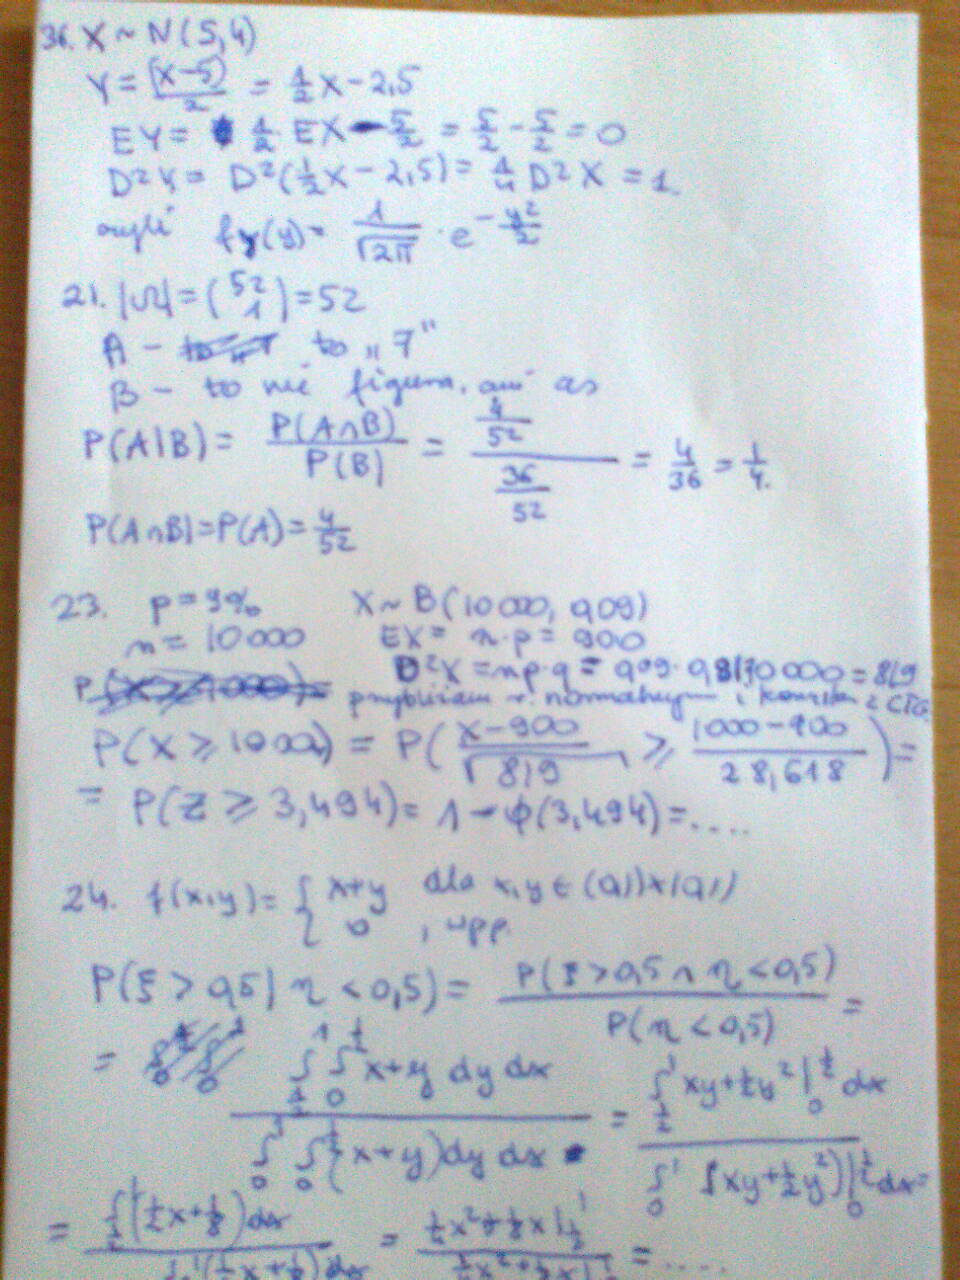 36. X ~ N(5,4)
Y = (X-5)/2 = 1/2 X - 2,5
EY = 1/2 EX - 5/2 = 5/2 - 5/2 = 0
D²Y = D²(1/2 X - 2,5) = 1/4 D²X = 1.
czyli fy(y) = 1/√2π · e^(-y²/2)
21. |Ω| = (52 1) = 52
A - to „7"
B - to nie figura, ani as
P(A|B) = P(A∩B)/P(B) = (4/52)/(36/52) = 4/36 = 1/4.
P(A∩B) = P(A) = 4/52
23. p = 9% X ~ B(10000, 0,09)
n = 10000 EX = n·p = 900
D²X = np·q = 0,09·0,91·10000 = 819
P(X ≥ 1000) = przybliżam r. normalnym i korzystam z CTG.
P(X ≥ 1000) = P((X-900)/√819 ≥ (1000-900)/28,618) =
= P(Z ≥ 3,494) = 1 - φ(3,494) = ....
24. f(x,y) = { x+y dla x,y ∈ (0,1)×(0,1)
0 , wpp.
P(ξ > 0,5 | η < 0,5) = P(ξ > 0,5 ∧ η < 0,5)/P(η < 0,5) =
= ∫_{1/2}^1 ∫_0^{1/2} x+y dy dx / ∫_0^1 ∫_0^{1/2} (x+y) dy dx = ∫_{1/2}^1 xy + 1/2 y² |_0^{1/2} dx / ∫_0^1 (xy + 1/2 y²)|_0^{1/2} dx =
= ∫_{1/2}^1 (1/2 x + 1/8) dx / ∫_0^1 (1/2 x + 1/8) dx = 1/4 x² + 1/8 x |_{1/2}^1 / 1/4 x² + 1/8 x | = .....